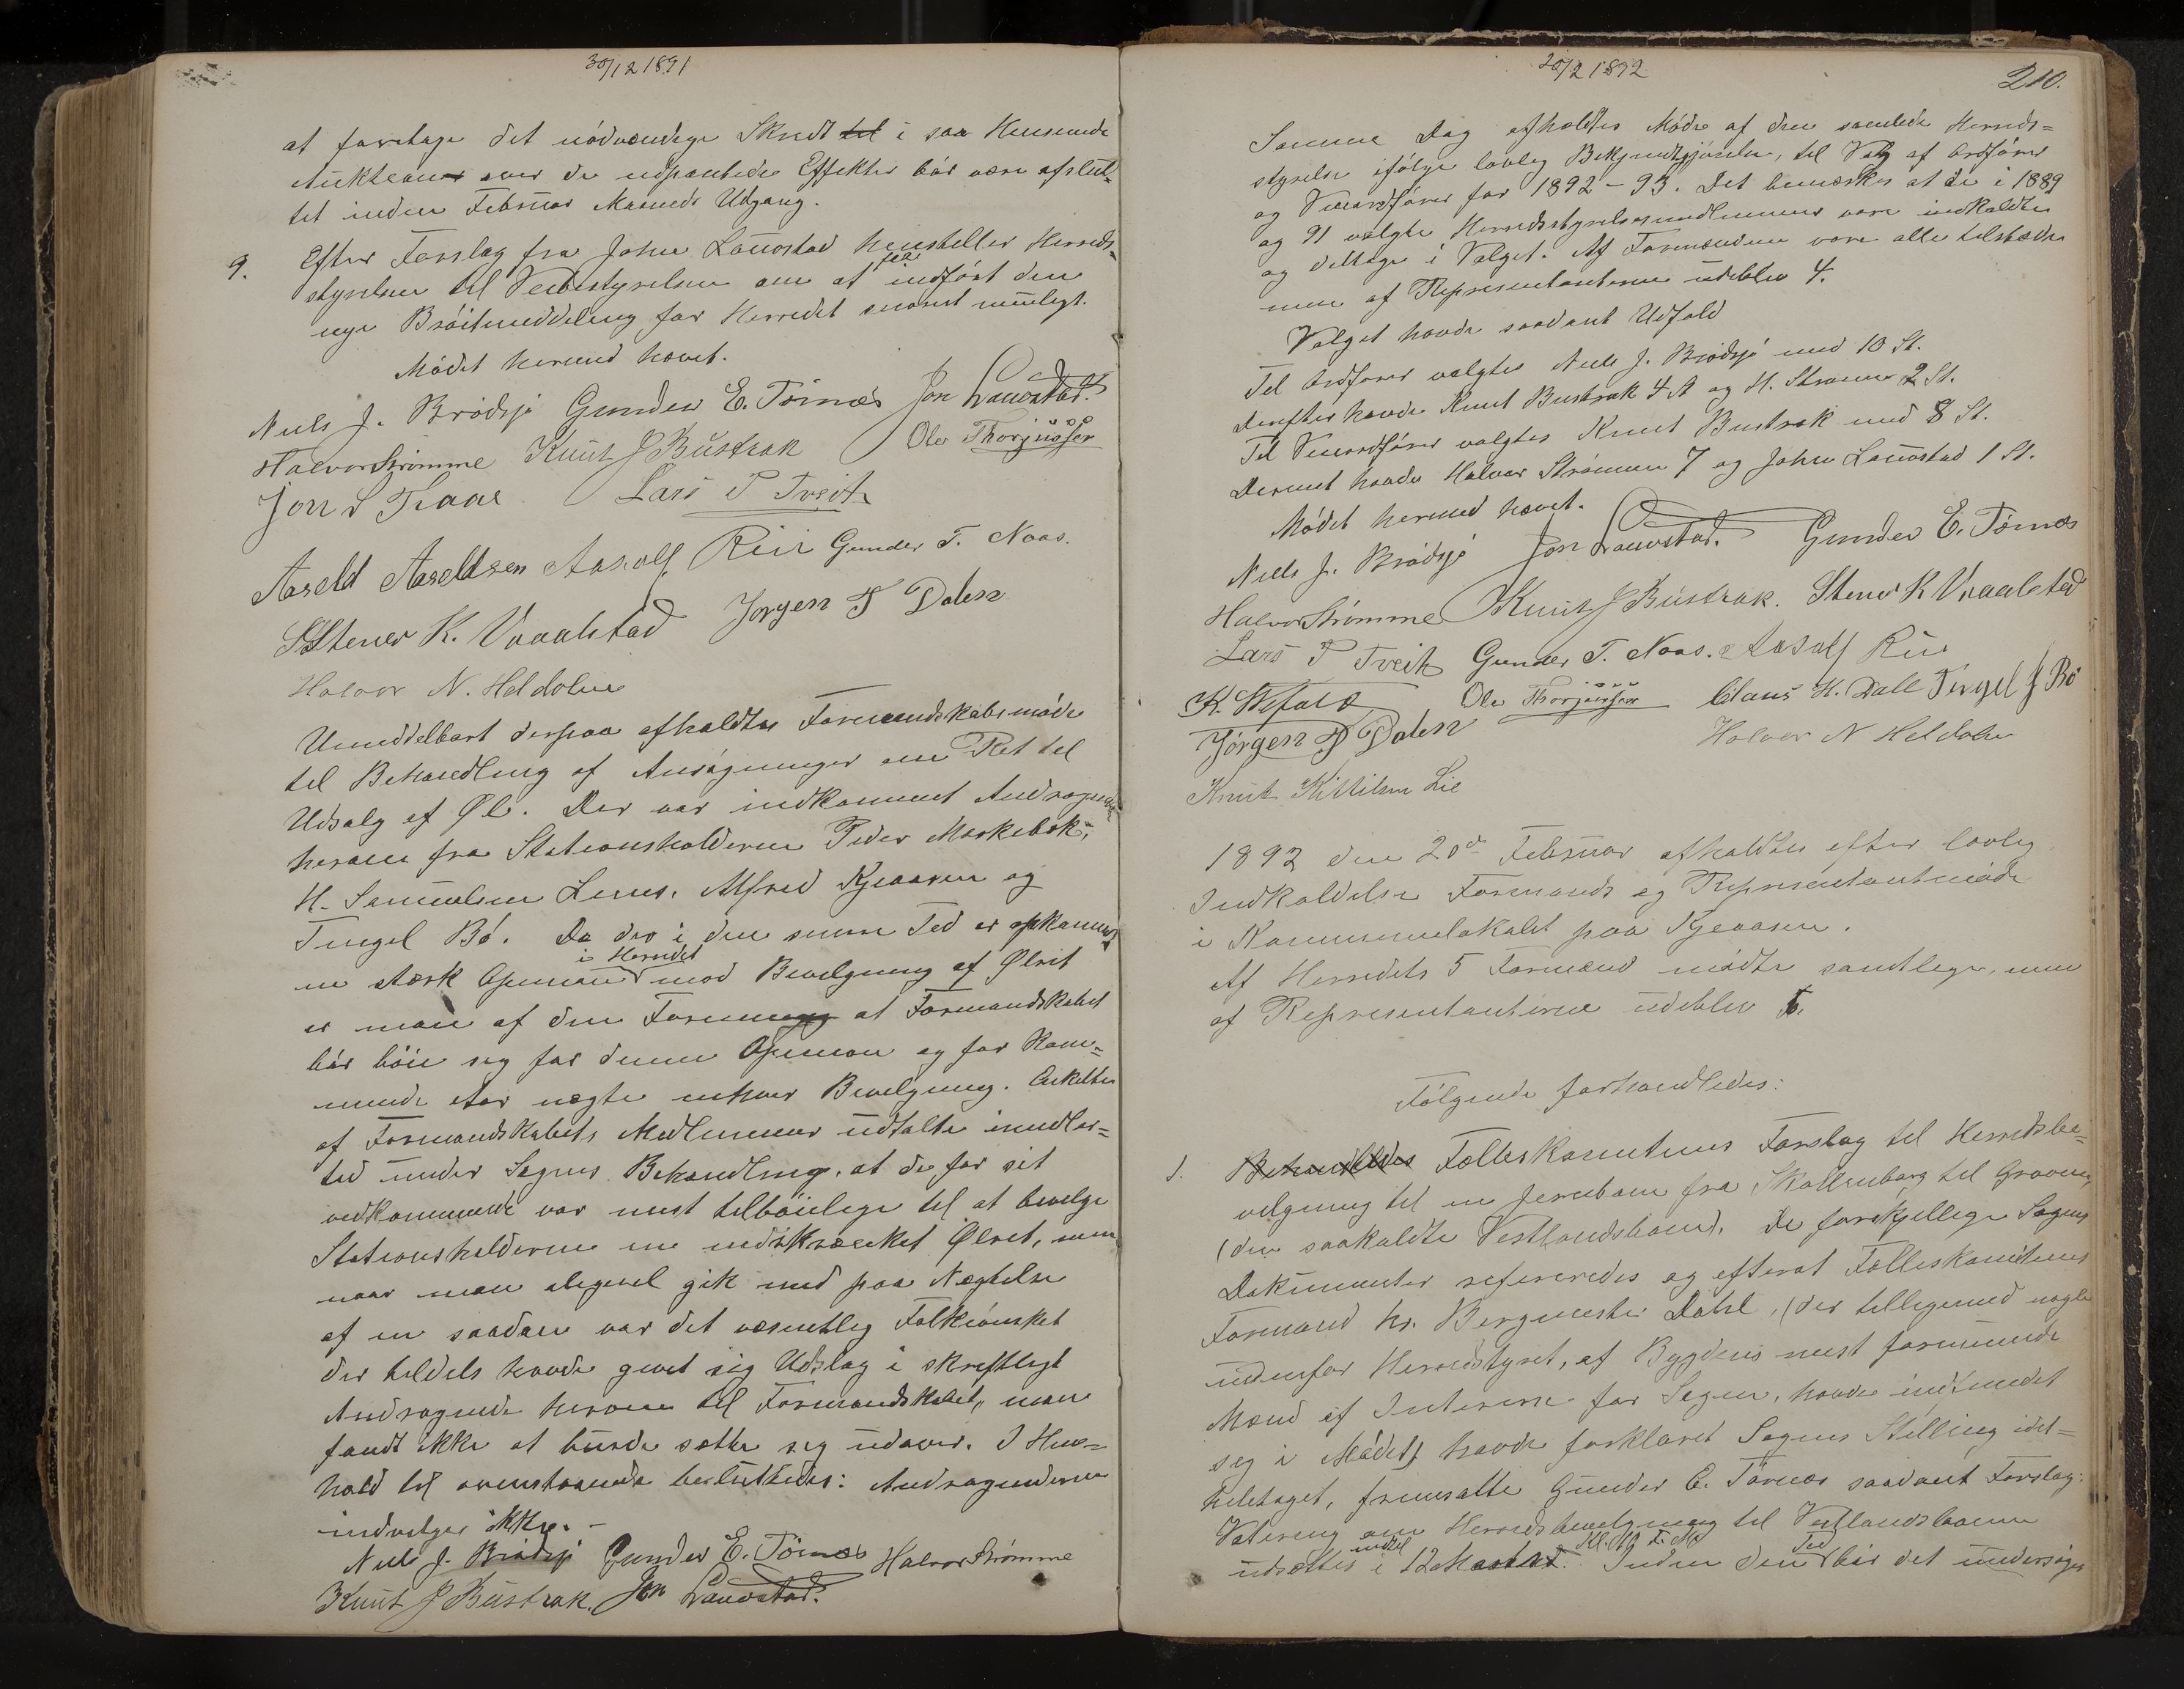 30/12 1891
at foretage det nödvændige Skridt til i saa Henseende
Auktionen over de udpantede Effekter bör være afslut-
tet inden Februar Maaneds Udgang.
9. Efter Forslag fra John Lauvstad henstiller Herreds-
styrelsen til Veibestyrelsen om at faa indfört den
nye Bröiteinddeling for Herredet snarest muligt.
Mödet hermed hævet.
Niels J. Brödsjö Gunder E. Törnes Jon Lauvstad.
Halvor Strömme Knut J Bustrak Ole Thorjussen
Jon S Traae Lars P Tveit
Aaseld Aaseldsen Aasolf Riis Gunder T. Naas.
Stener K. Vraalstad Jorgen T Dalen
Halvor N. Heldalen
Umiddelbart derpaa afholdtes Formandskabsmöde
til Behandling af Ansögninger om Ret til
Udsalg af Øl. Der var indkommet Andragende
herom fra Stationsholderne Peder Moskebæk,
H. Samuelsen Lenes, Alfred Kjeaasen og
Tengel Bö. Da der i den senere Tid er opkommet
en stærk Openion i Herredet mod Bevilgning af Ølret
er man af den Forening at Formandskabet
bör böie sig for denne Openion og for Kom-
mende Aar nægte enhver Bevilgning. Enkelte
af Formandskabets Medlemmer udtalte imidler-
tid under Sagens Behandling, at de for sit
vedkommende var mest tilböielige til at bevilge
Stationsholderne en indskrænket Ølret, men
naar man alligevel gik med paa Nægtelse
af en saadan var det væsentlig Folkeönsket
der tildels havde givet sig Udslag i skriftligt
Andragende herom til Formandskabet, man
fandt ikke at burde sætte sig udover. I Hen-
hold til ovenstaaende besluttedes: Andragenderne
indvilges ikke. -
Niels J. Brödsjö Gunder E. Törnes Halvor Strömme
Knut J Bustrak. Jon Lauvstad.
20/2 1892
210.
Samme Dag afholdtes Möde af den samlede Herreds-
styrelse ifölge lovlig Bekjendtgjörelse, til Valg af Ordförer
og Viceordförer for 1892-93. Det bemærkes at de i 1889
og 91 valgte Herredsstyrelsesmedlemmer vare indkaldte
og deltage i Valget. Af Formændene vare alle tilstæde
men af Repræsentanterne udeblev 4.
Valget havde saadant Udfald
Til Ordförer valgtes Niels J. Brödsjö med 10 St.
Derefter havde Knut Bustrak 4 St og H. Strömme 2 St.
Til Viceordförer valgtes Knut Bustrak med 8 St.
Dernæst havde Halvor Strömme 7 og John Lauvstad 1 St.
Mödet hermed hævet.
Niels J. Brödsjö Jon Lauvstad. Gunder E. Törnes
Halvor Strömme Knut J Bustrak. Stener K Vraalstad
Lars P Tveit Gunder T. Naas. Aasolf Riis
Ole Thorjussen Claus H. Dall Tengel J Bö
Jörgen T Dalen Halvor N Heldalen
Knut Kittilsen Lie
1892 den 20de Februar afholdtes efter lovlig
Indkaldelse Formands og Repræsentantmöde
i Kommunelokalet paa Kjeaasen.
Af Herredets 5 Formænd mödte samtlige, men
af Repræsentanterne udeblev 5.
Fölgende forhandledes:
1. Behandledes Fælleskomiteens Forslag til Herredsbe-
vilgning til en Jernbane fra Skollenborg til Gravene,
(den saakaldte Vestlandsbane). De forskjellige Sagens
Dokumenter refereredes og efterat Fælleskomiteens
Formand Hr. Bergmester Dahl, (der tilligemed nogle
udenfor Herredstyret, af Bygdens mest formuende
Mænd af Interesse for Sagen, havde indfundet
sig i Mödet) havde forklaret Sagens Stilling idet-
heletaget, fremsatte Gunder E. Törnes saadant Forslag:
Votering om Herredsbevilgning til Vestlandsbanen
udsættes indtil 12 Marts Kl. 10 F.M. Inden den Tid bör det undersöges